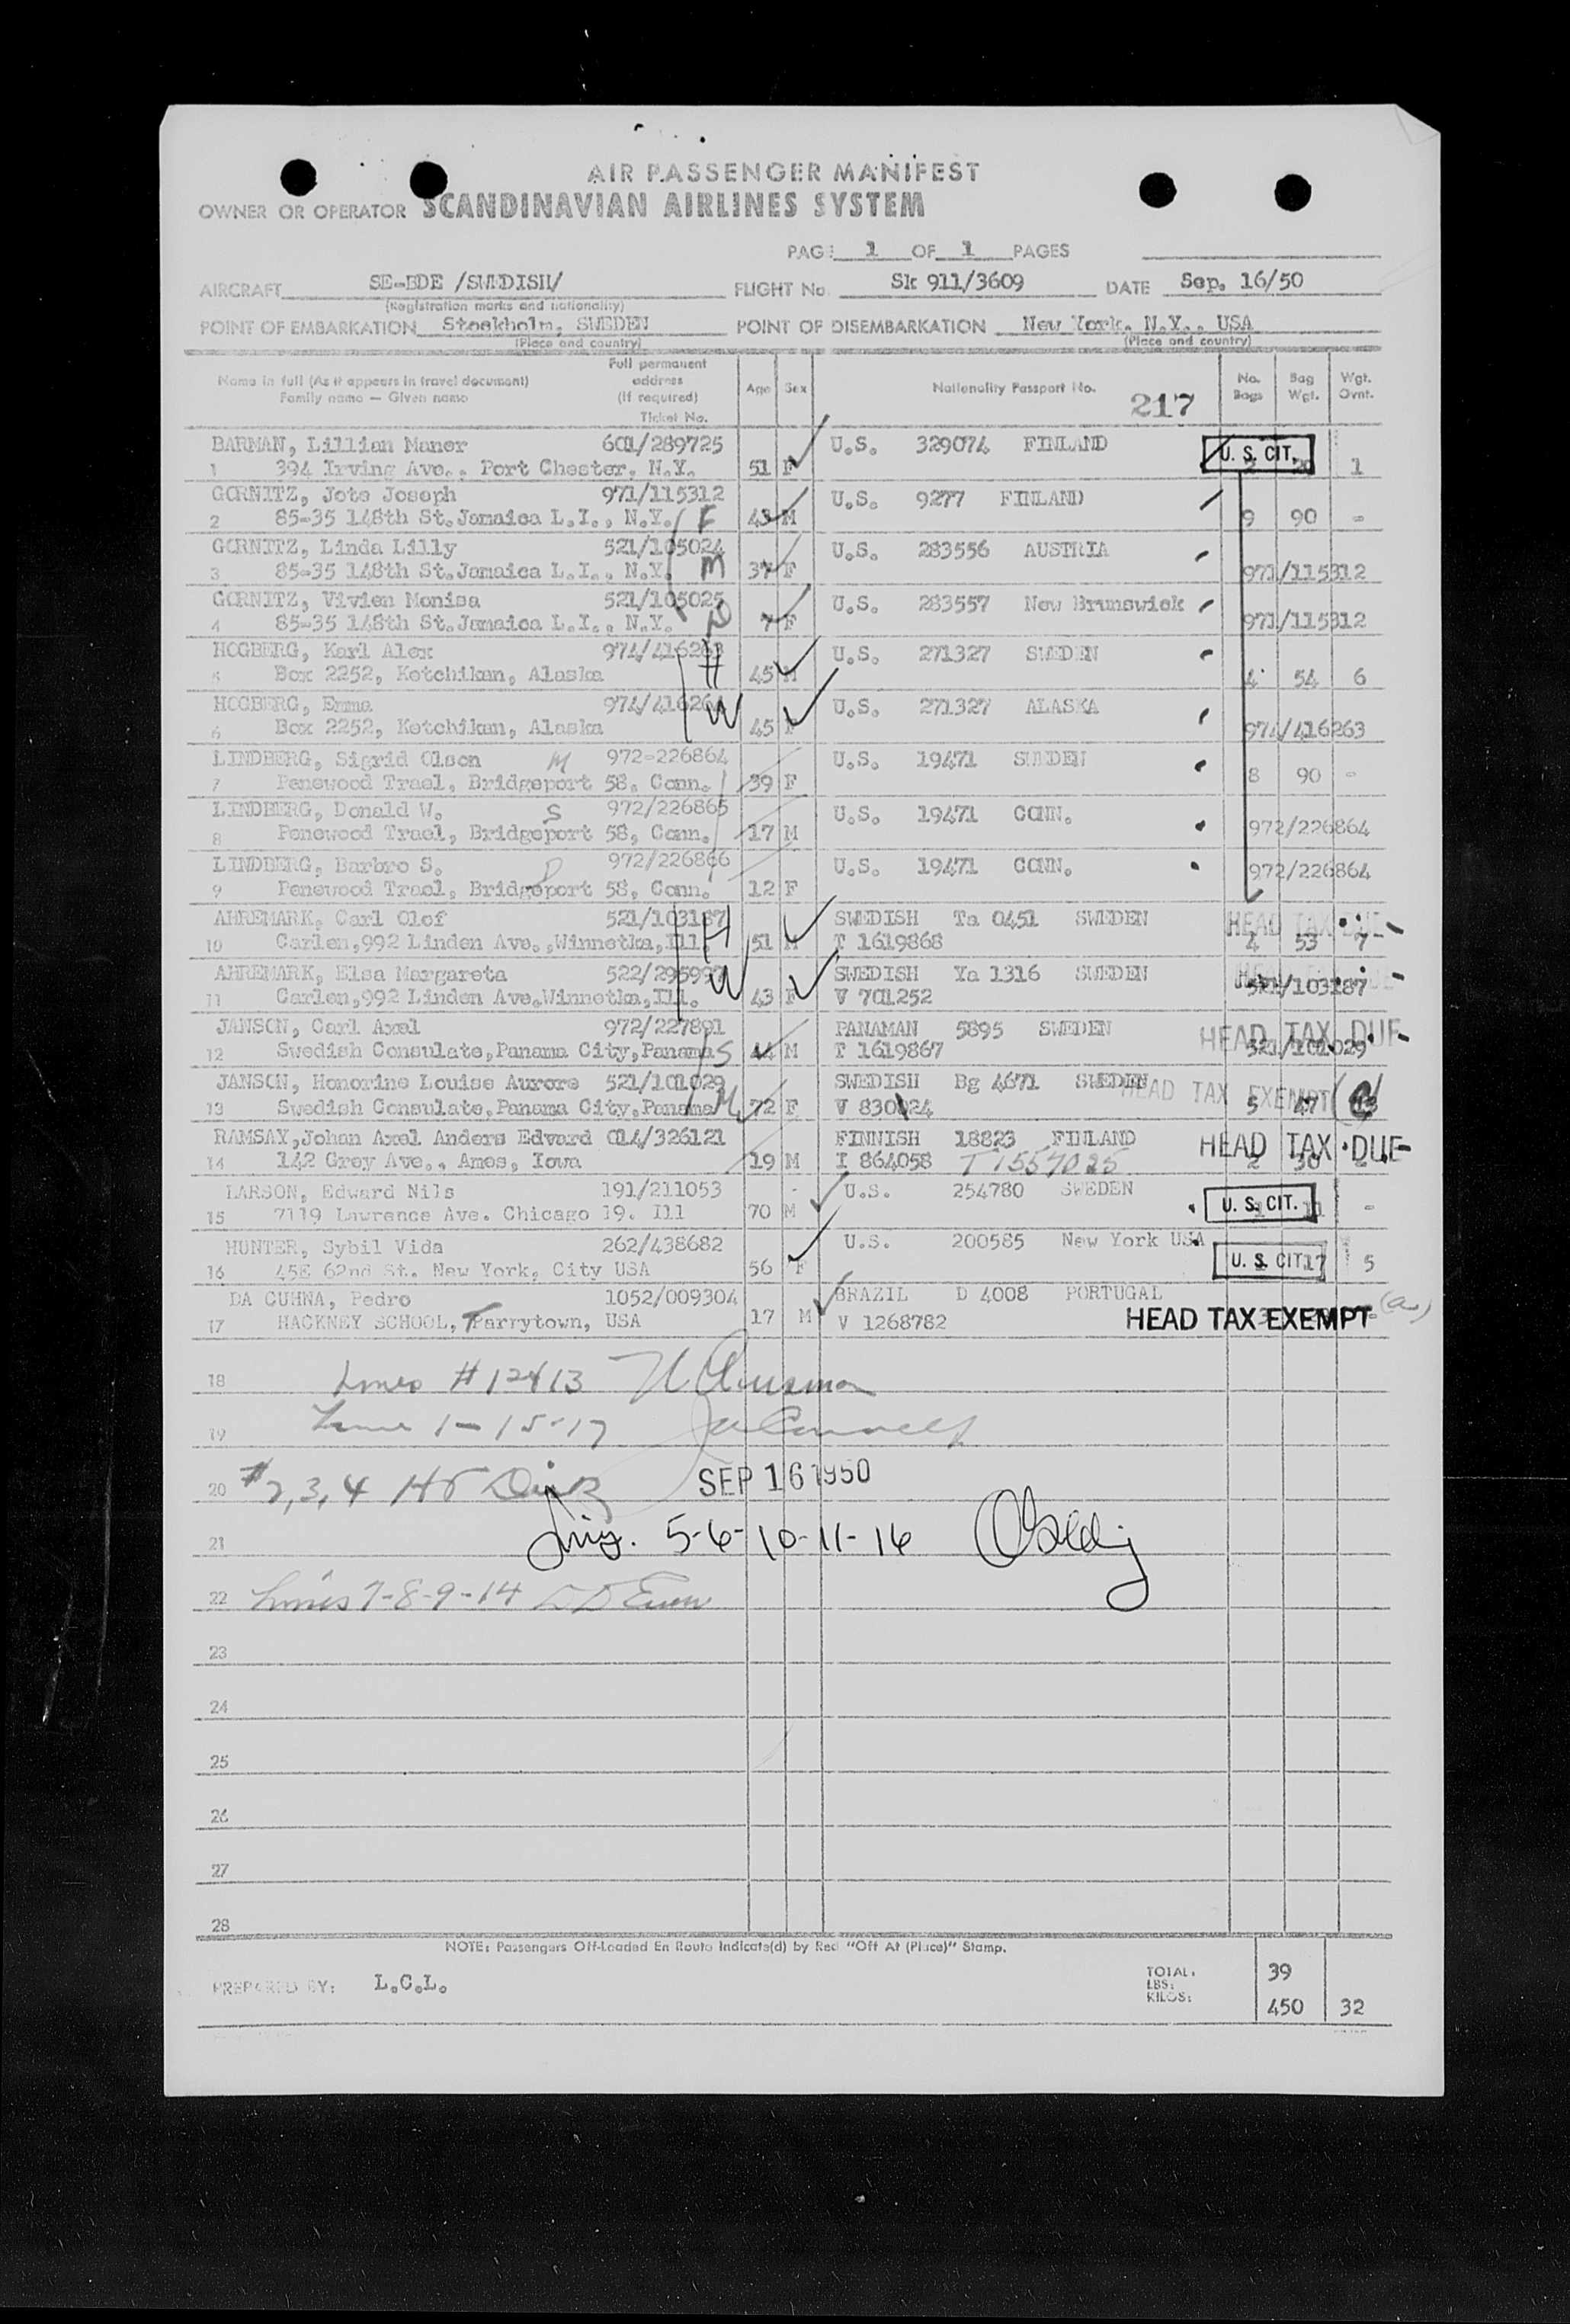 AIR PASSENGER MANIFEST
OWNER OR OPERATOR SCANDINAVIAN AIRLINES SYSTEM
PAGE 1 OF 1 PAGES
AIRCRAFT SE-BDE /SWEDISH/ FLIGHT No. Sk 911/3609 DATE Sep. 16/50
(Registration marks and nationality)
POINT OF EMBARKATION Stockholm, SWEDEN POINT OF DISEMBARKATION New York. N.Y.. USA
(Place and country) (Place and country)
Name in full (As it appears in travel document) Family name — Given name Full permanent address (If required) Ticket No. Age Sex Nationality Passport No. 217 No. Bags Bag Wgt. Wgt. Ovnt.
BARMAN, Lillian Maner 601/289725 U.S. 329074 FINLAND U. S. CIT.
1 394 Irving Ave.. Port Chester, N.Y. 51 F 1
GORNITZ, Jote Joseph 971/115312 U.S. 9277 FINLAND
2 85-35 148th St.Jamaica L.I., N.Y. F 43 M 9 90 -
GORNITZ, Linda Lilly 521/105024 U.S. 283556 AUSTRIA
3 85-35 148th St.Jamaica L.I., N.Y. M 37 F 971/115312
GORNITZ, Vivien Monisa 521/105025 U.S. 283557 New Brunswick
4 85-35 148th St.Jamaica L.I., N.Y. D 7 F 971/115312
HOGBERG, Karl Alex 974/416263 H U.S. 271327 SWEDEN
5 Box 2252, Ketchikan, Alaska 45 M 4 54 6
HOGBERG, Emma 974/416264 W U.S. 271327 ALASKA
6 Box 2252, Ketchikan, Alaska 45 F 974/416263
LINDBERG, Sigrid Olson M 972-226864 U.S. 19471 SWEDEN
7 Penewood Trael, Bridgeport 58, Conn. 39 F 8 90 -
LINDBERG, Donald W. S 972/226865 U.S. 19471 CONN.
8 Penewood Trael, Bridgeport 58, Conn. 17 M 972/226864
LINDBERG, Barbro S. D 972/226866 U.S. 19471 CONN.
9 Penewood Trael, Bridgeport 58, Conn. 12 F 972/226864
AHREMARK, Carl Olof 521/103187 H SWEDISH Ta 0451 SWEDEN HEAD TAX DUE
10 Carlen,992 Linden Ave.,Winnetka,Ill. 51 M T 1619868 4 53 7
AHREMARK, Elsa Margareta 522/295997 W SWEDISH Ya 1316 SWEDEN
11 Carlen,992 Linden Ave.Winnetka,Ill. 43 F V 701252 521/103187
JANSON, Carl Axel 972/227891 PANAMAN 5895 SWEDEN HEAD TAX DUE
12 Swedish Consulate,Panama City,Panama S 44 M T 1619867 521/101029
JANSON, Honorine Louise Aurore 521/101029 SWEDISH Bg 4671 SWEDEN HEAD TAX EXEMPT
13 Swedish Consulate,Panama City,Panama M 72 F V 830824 5 47
RAMSAY,Johan Axel Anders Edvard 014/326121 FINNISH 18823 FINLAND HEAD TAX DUE
14 142 Grey Ave., Ames, Iowa 19 M I 864058 T1557025 2 30
LARSON, Edward Nils 191/211053 U.S. 254780 SWEDEN U. S. CIT.
15 7119 Lawrence Ave. Chicago 19. Ill 70 M 11 -
HUNTER, Sybil Vida 262/438682 U.S. 200585 New York USA
16 45E 62nd St. New York, City USA 56 F U. S. CIT. 17 5
DA CUHNA, Pedro 1052/009304 BRAZIL D 4008 PORTUGAL
17 HACKNEY SCHOOL, Tarrytown, USA 17 M V 1268782 HEAD TAX EXEMPT (a)
18 Lines # 12413
19 Line 1-15-17
20 #2,3,4 SEP 16 1950
21 5-6-10-11-16
22 Lines 7-8-9-14
23
24
25
26
27
28
NOTE: Passengers Off-Loaded En Route Indicate(d) by Red "Off At (Place)" Stamp.
PREPARED BY: L.C.L. TOTAL: 39
LBS:
KILOS: 450 32